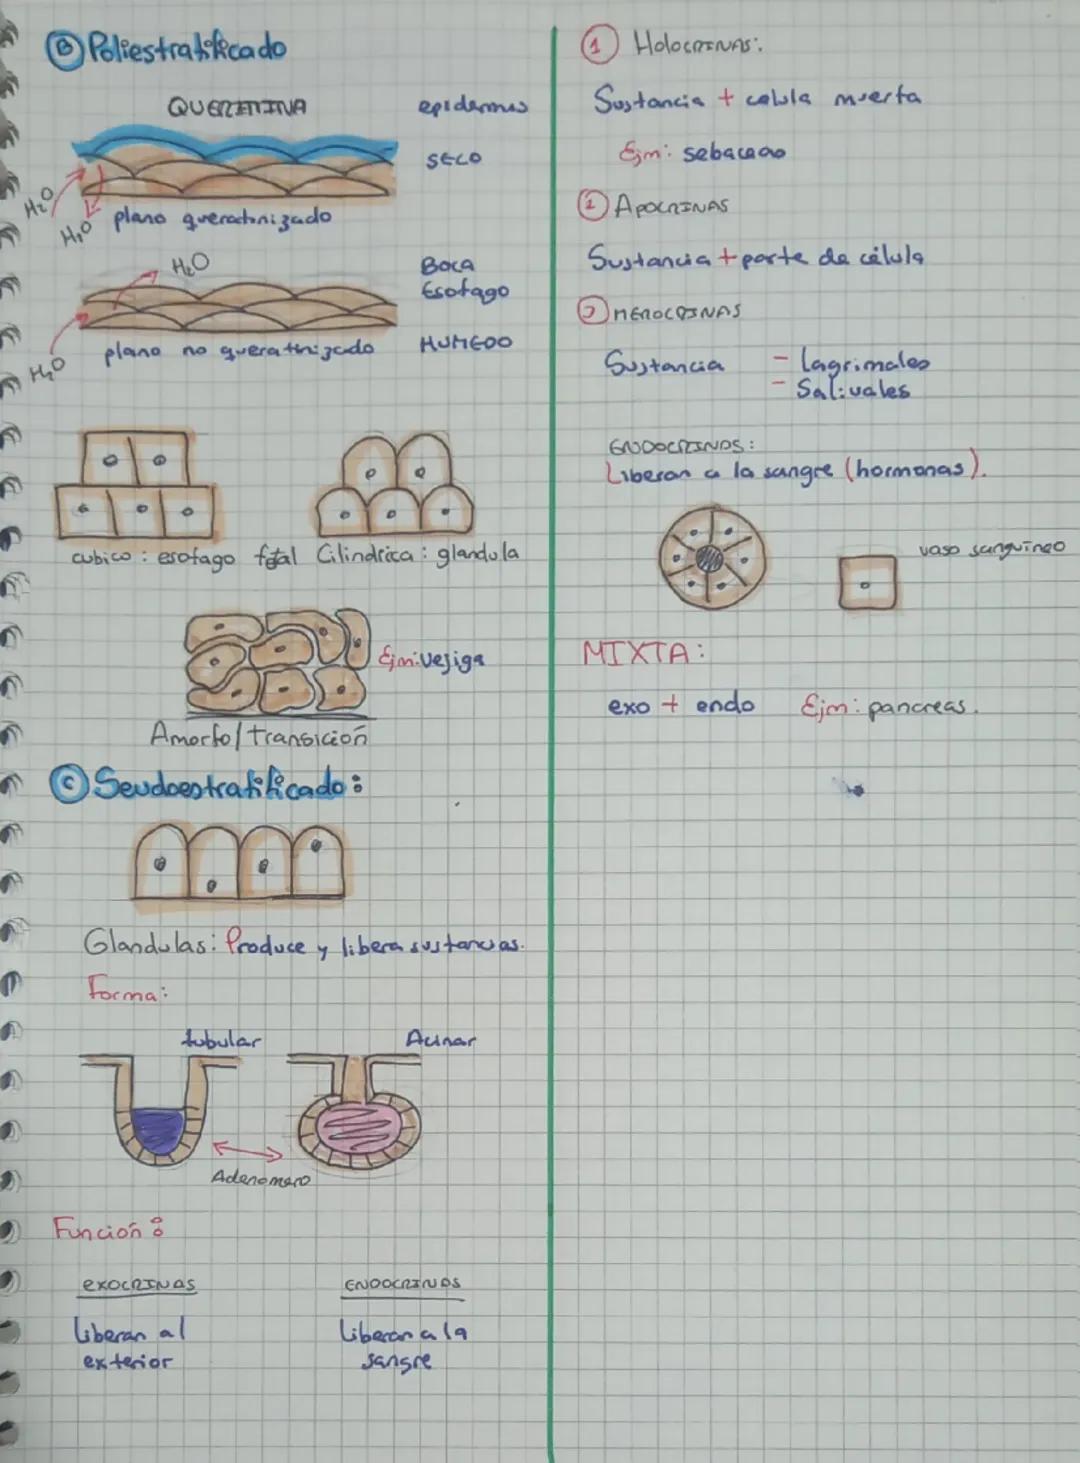 B Poliestratificado
QUERATINA epidermis
SECO
H₂O
H₂O
plano queratinizado
H₂O
Boca
Esofago
HUMEDO
plano no queratinizado
H₂O
cubico : esofago fetal Cilindrica : glandula
Ejm: vejiga
Amorfo/transición
C Seudoestratificado:
Glandulas: Produce y libera sustancias.
Forma:
tubular Acinar
Adenomero
Función:
EXOCRINAS ENDOCRINAS
Liberan al
exterior
Liberan a la
sangre
1 HOLOCRINAS:
Sustancia + celula muerta
Ejm: sebaceao
2 APOCRINAS
Sustancia + parte de célula
3 MEROCRINAS
Sustancia - lagrimales
- Salivales
ENDOCRINOS:
Liberan a la sangre (hormonas).
vaso sanguineo
MIXTA:
exo + endo Ejm: pancreas.